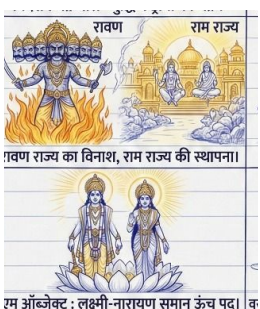 रावण राम राज्य
रावण राज्य का विनाश, राम राज्य की स्थापना।
ऑब्जेक्ट : लक्ष्मी-नारायण समान ऊंच पद।